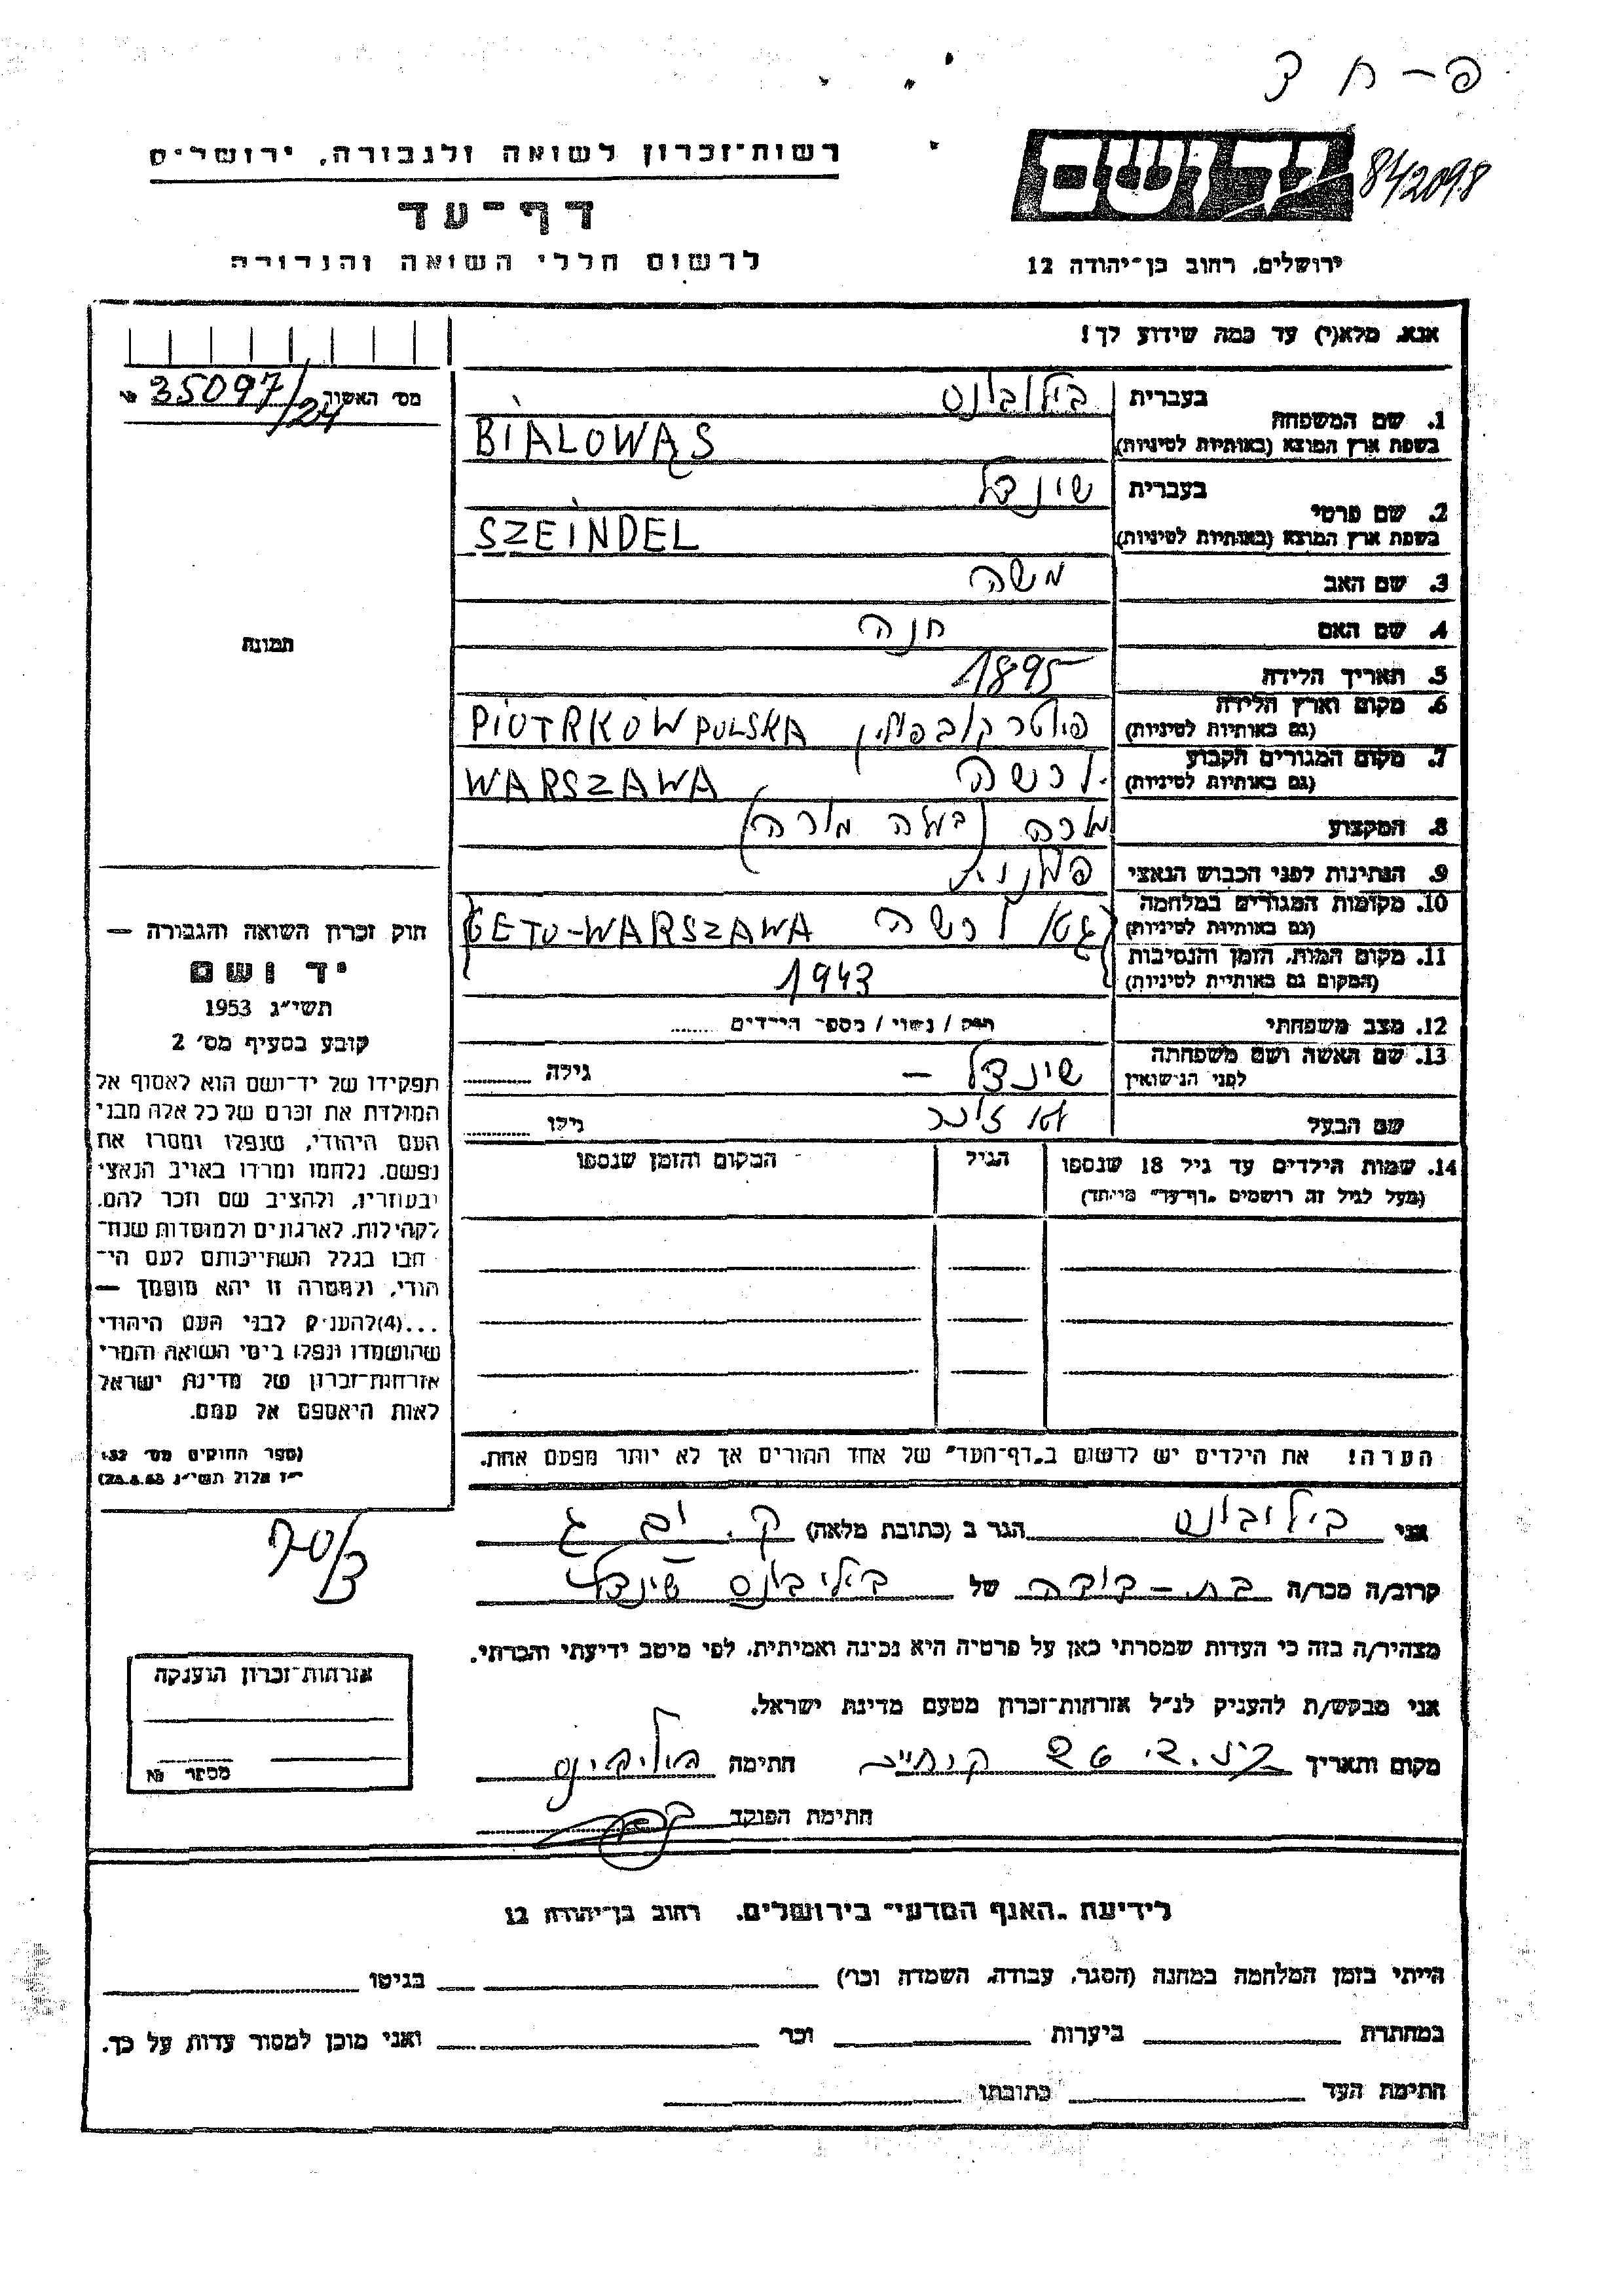 פ-ח ד
רשות־זכרון לשואה ולגבורה, ירושלים
יד ושם
84/2098
דף־עד
לרשום חללי השואה והגבורה
ירושלים, רחוב בן־יהודה 12
אנא, מלא(י) עד כמה שידוע לך!
מס' האשור 35097/24 №
1. שם המשפחה
בעברית
בשפת ארץ המוצא (באותיות לטיניות) BIALOWĄS
2. שם פרטי
בעברית שינדל
בשפת ארץ המוצא (באותיות לטיניות) SZEINDEL
3. שם האב משה
4. שם האם חנה
5. תאריך הלידה 1895
6. מקום וארץ הלידה
(גם באותיות לטיניות) PIOTRKÓW POLSKA
7. מקום המגורים הקבוע ורשה
(גם באותיות לטיניות) WARSZAWA
8. המקצוע מורה
9. הנתינות לפני הכבוש הנאצי פולנית
10. מקומות המגורים במלחמה
(גם באותיות לטיניות) גטו ורשה GETO-WARSZAWA
11. מקום המות, הזמן והנסיבות
(המקום גם באותיות לטיניות) 1943
12. מצב משפחתי רווק / נשוי / מספר הילדים
13. שם האשה ושם משפחתה
לפני הנישואין שינדל – גילה
שם הבעל גילו
14. שמות הילדים עד גיל 18 שנספו הגיל המקום והזמן שנספו
(מעל לגיל זה רושמים "דף־עד" מיוחד)
הערה! את הילדים יש לרשום ב"דף־העד" של אחד ההורים אך לא יותר מפעם אחת.
תמונה
חוק זכרון השואה והגבורה —
יד ושם
תשי"ג 1953
קובע בסעיף מס' 2
תפקידו של יד־ושם הוא לאסוף אל
המולדת את זכרם של כל אלה מבני
העם היהודי, שנפלו ומסרו את
נפשם, נלחמו ומרדו באויב הנאצי
ובעוזריו, ולהציב שם וזכר להם,
לקהילות, לארגונים ולמוסדות שנח־
רבו בגלל השתייכותם לעם הי־
הודי, ולמטרה זו יהא מוסמך —
...(4)להעניק לבני העם היהודי
שהושמדו ונפלו בימי השואה והמרי
אזרחות־זכרון של מדינת ישראל
לאות היאספם אל עמם.
(ספר החוקים מס' 132
י"ז אלול תשי"ג 28.8.53)
אני הגר ב (כתובת מלאה) ק. ים ג
קרוב/ה מכר/ה בת-דודה של
מצהיר/ה בזה כי העדות שמסרתי כאן על פרטיה היא נכונה ואמיתית, לפי מיטב ידיעתי והכרתי.
אני מבקש/ת להעניק לנ"ל אזרחות־זכרון מטעם מדינת ישראל.
מקום ותאריך חתימה
חתימת הפוקד
אזרחות־זכרון הוענקה
מספר №
לידיעת "האגף המדעי" בירושלים, רחוב בן־יהודה 12
הייתי בזמן המלחמה במחנה (הסגר, עבודה, השמדה וכו') בגיטו
במחתרת ביערות וכו' ואני מוכן למסור עדות על כך.
חתימת העד כתובתו